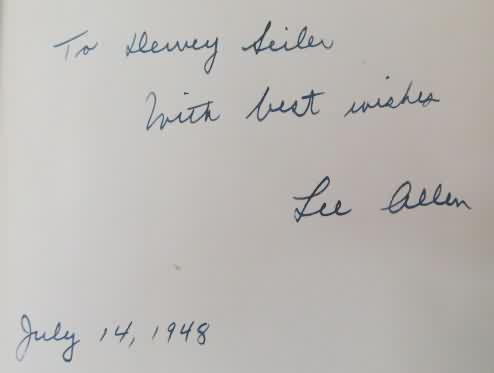 To Dewey Seiler
With best wishes
Lee Allen
July 14, 1948